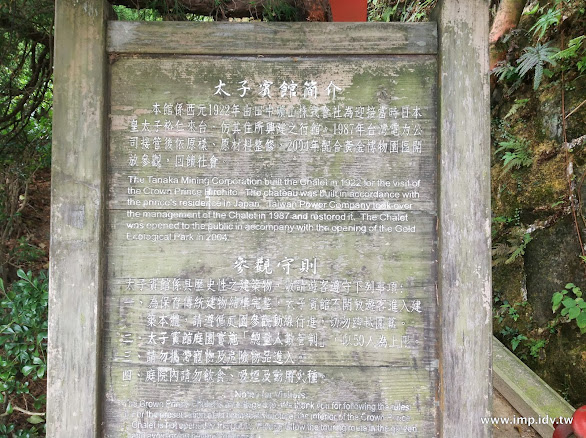 太子賓館簡介
本館係西元1922年由田中礦山株式會社為迎接當時日本
皇太子裕仁來台，仿其住所興建之行館。1987年台灣電力公
司接管後依原樣、原材料整修，2004年配合黃金博物園區開
放參觀，回饋社會
The Tanaka Mining Corporation built the Chalet in 1922 for the visit of
the Crown Prince Hirohito. The chateau was built in accordance with
the prince's residence in Japan. Taiwan Power Company took over
the management of the Chalet in 1987 and restored it. The Chalet
was opened to the public in accompany with the opening of the Gold
Ecological Park in 2004.
參觀守則
太子賓館係具歷史性之建築物，敬請遊客遵守下列事項：
一、為保存傳統建物維護完整，太子賓館不開放遊客進入建
築本體，請遵循庭園參觀動線行進，切勿跨越圍籬。
二、太子賓館庭園實施「總量人數管制」，以50人為上限
三、請勿攜帶寵物及危險物品進入。
四、庭院內請勿飲食、吸煙及動用火種。
the Crown Prince
thank you for following the rules
interior of the Crown
Chalet is not open
www.imp.idv.tw